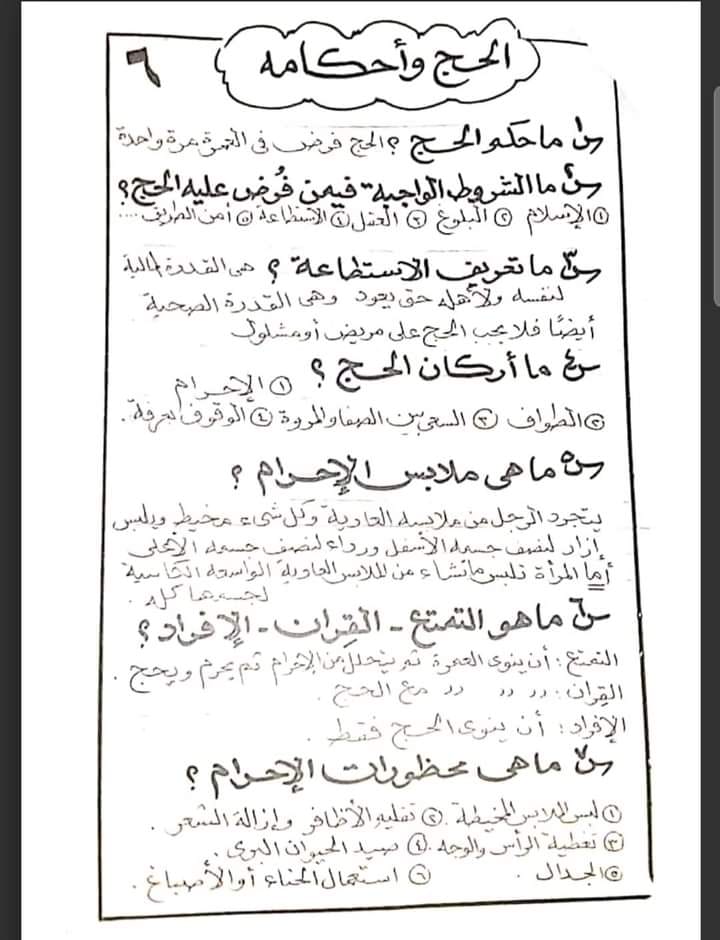 الحج وأحكامه
٦
س١ ما حكم الحج ؟ الحج فرض فى العمر مرة واحدة
س٢ ما الشروط الواجبة فيمن فُرض عليه الحج ؟
١ الإسلام ٢ البلوغ ٣ العقل ٤ الاستطاعة ٥ أمن الطريق ....
س٣ ما تعريف الاستطاعة ؟ هى القدرة المالية
لنفسه ولأهله حتى يعود وهى القدرة الصحية
أيضًا فلا يجب الحج على مريض أو مشلول
س٤ ما أركان الحج ؟ ١ الإحرام
٢ الطواف ٣ السعى بين الصفا والمروة ٤ الوقوف بعرفة .
س٥ ما هى ملابس الإحرام ؟
يتجرد الرجل من ملابسه العادية وكل شىء مخيط ويلبس
إزار لنصف جسمه الأسفل ورداء لنصف جسمه الأعلى
أما المرأة تلبس ما تشاء من الملابس العادية الواسعة الكاسية
لجسمها كله .
س٦ ما هو التمتع - القِران - الإفراد ؟
التمتع : أن ينوى العمرة ثم يتحلل من الإحرام ثم يحرم ويحج .
القِران : 〃 〃 〃 مع الحج .
الإفراد : أن ينوى الحج فقط .
س٧ ما هى محظورات الإحرام ؟
١ لبس الملابس المخيطة . ٢ تقليم الأظافر وإزالة الشعر .
٣ تغطية الرأس والوجه . ٤ صيد الحيوان البرى .
٥ الجدال . ٦ استعمال الحناء أو الأصباغ .